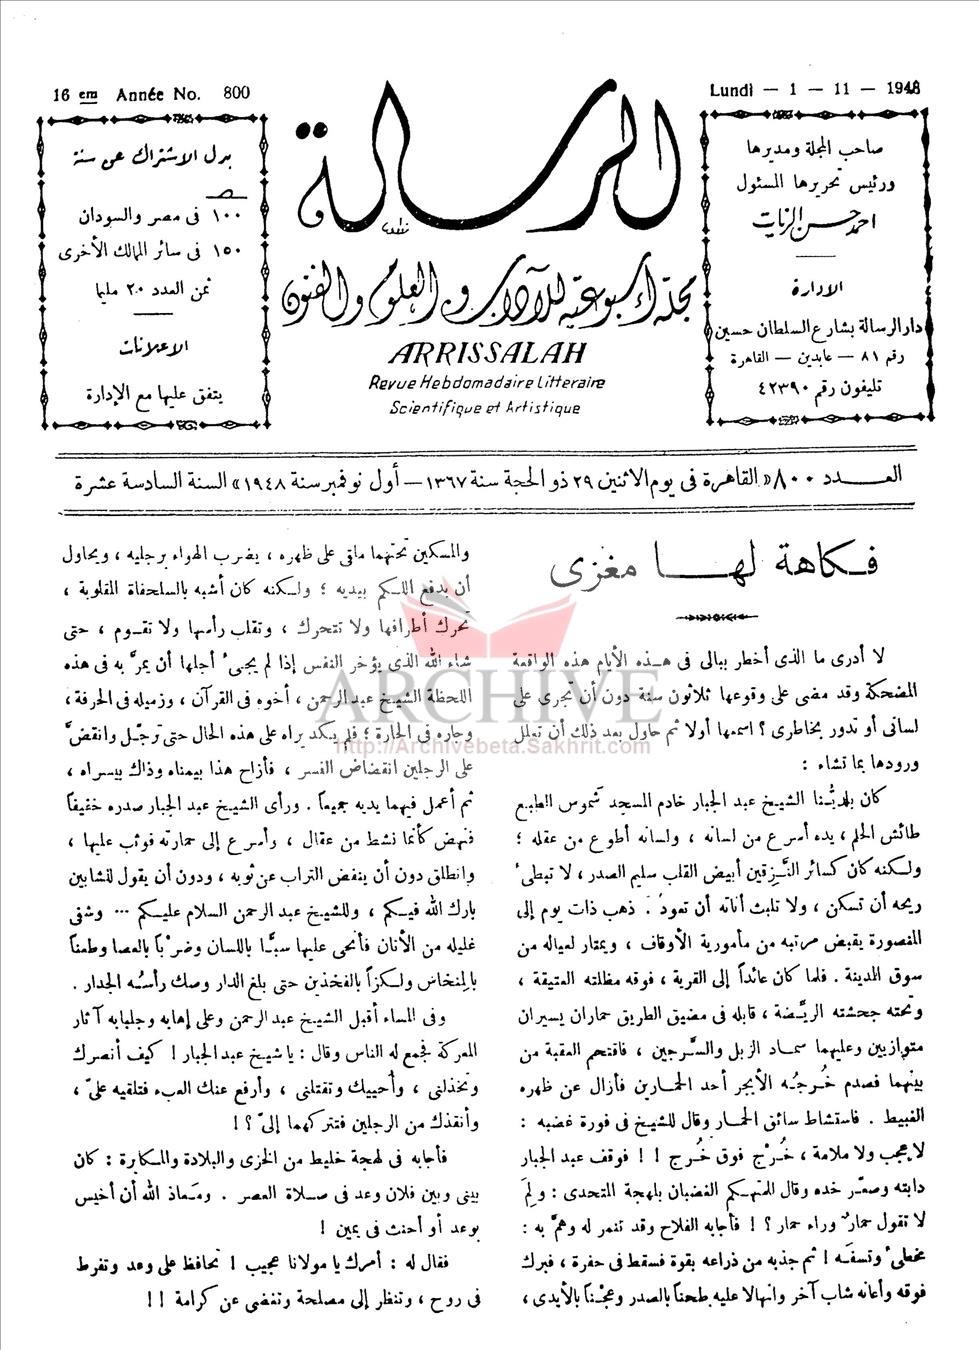 16 em Année No. 800
Lundi — 1 — 11 — 1948
صاحب المجلة ومديرها
ورئيس تحريرها المسئول
احمد حسن الزيات
الادارة
دار الرسالة بشارع السلطان حسين
رقم ٨١ — عابدين — القاهرة
تليفون رقم ٤٢٣٩٠
الرسالة
مجلة أسبوعية للآداب والعلوم والفنون
ARRISSALAH
Revue Hebdomadaire Litteraire
Scientifique et Artistique
بدل الاشتراك عن سنة
١٠٠ فى مصر والسودان
١٥٠ فى سائر الممالك الأخرى
ثمن العدد ٢٠ مليما
الاعلانات
يتفق عليها مع الإدارة
العـــدد ٨٠٠ « القاهرة فى يوم الاثنين ٢٩ ذو الحجة سنة ١٣٦٧ — أول نوفمبر سنة ١٩٤٨ » السنة السادسة عشرة
فـكاهة لهـــا مغزى
لا أدرى ما الذى أخطر ببالى فى هـذه الأيام هذه الواقعة
المضحكة وقد مضى على وقوعها ثلاثون سنة دون أن تجرى على
لسانى أو تدور بخاطرى ؟ اسمعها أولا ثم حاول بعد ذلك أن تعلل
ورودها بما تشاء :
كان بلديُّنا الشيخ عبد الجبار خادم المسجد شموس الطبع
طائش الحلم ، يده أسرع من لسانه ، ولسانه أطوع من عقله ؛
ولـكنه كان كسائر النَّزِقين أبيض القلب سليم الصدر ، لا تبطئ
ريحه أن تسكن ، ولا تلبث أناته أن تعود . ذهب ذات يوم إلى
المقصورة يقبض مرتبه من مأمورية الأوقاف ، ويمتار لعياله من
سوق المدينة . فلما كان عائداً إلى القرية ، فوقه مظلته العتيقة ،
وتحته جحشته الريِّضة ، قابله فى مضيق الطريق حماران يسيران
متوازيين وعليهما سماد الزبل والسَّرجين ، فاقتحم العقبة من
بينهما فصدم خُـرجُـه الأبجر أحد الحمارين فأزال عن ظهره
الغبيط . فاستشاط سائق الحمار وقال للشيخ فى فورة غضبه :
لا عجب ولا ملامة ، خُـرْج فوق خُـرج ! ! فوقف عبد الجبار
دابته وصعَّر خده وقال للمتهـكم الغضبان بلهجة المتحدى : ولِمَ
لا تقول حمارٌ وراء حمار ؟ ! فأجابه الفلاح وقد تنمر له وهمَّ به :
تخطئ وتسفَه ! ثم جذبه من ذراعه بقوة فسقط فى حفرة ، فبرك
فوقه وأعانه شاب آخر وانهالا عليه طحناً بالصدر وعجْناً بالأيدى ،
والمسكين تحتهما ملقى على ظهره ، يضرب الهواء برجليه ، ويحاول
أن يدفع اللـكم بيديه ؛ ولـكنه كان أشبه بالسلحفاة المقلوبة ،
تحرك أطرافها ولا تتحرك ، وتقلب رأسها ولا تقـوم ، حتى
شاء الله الذى يؤخر النفس إذا لم يجئ أجلها أن يمرَّ به فى هذه
اللحظة الشيخ عبد الرحمن ، أخوه فى القرآن ، وزميله فى الحرفة ،
وجاره فى الحارة ؛ فلم يكد يراه على هذه الحال حتى ترجَّل وانقضَّ
على الرجلين انقضاض النسر ، فأزاح هذا بيمناه وذاك بيسراه ،
ثم أعمل فيهما يديه جميعاً . ورأى الشيخ عبد الجبار صدره خفيفاً
فنهض كأنما نشط من عقال ، وأسرع إلى حمارته فوثب عليها ،
وانطلق دون أن ينفض التراب عن ثوبه ، ودون أن يقول للشابين
بارك الله فيـكم ، وللشيخ عبد الرحمن السلام عليـكم ... وشفى
غليله من الأتان فأنحى عليها سبًّا باللسان وضرْباً بالعصا وطعناً
بالمِنخاس ولـكزاً بالفخذين حتى بلغ الدار وصك رأسُه الجدار .
وفى المساء أقبل الشيخ عبد الرحمن وعلى إهابه وجلبابه آثار
المعركة فجمع له الناس وقال : يا شيخ عبد الجبار ! كيف أنصرك
وتخذلنى ، وأحييك وتقتلنى ، وأرفع عنك العبء فتلقيه علىّ ،
وأنقذك من الرجلين فتتركهما إلىّ ؟ !
فأجابه فى لهجة خليط من الخزى والبلادة والمـكابرة : كان
بينى وبين فلان وعد فى صـلاة العصر . ومَـعاذ الله أن أخيس
بوعد أو أحنث فى يمين !
فقال له : أمرك يا مولانا عجيب ! تحافظ على وعد وتفرط
فى روح ، وتنظر إلى مصلحة وتغضى عن كرامة !!
ARCHIVE
http://Archivebeta.Sakhrit.com